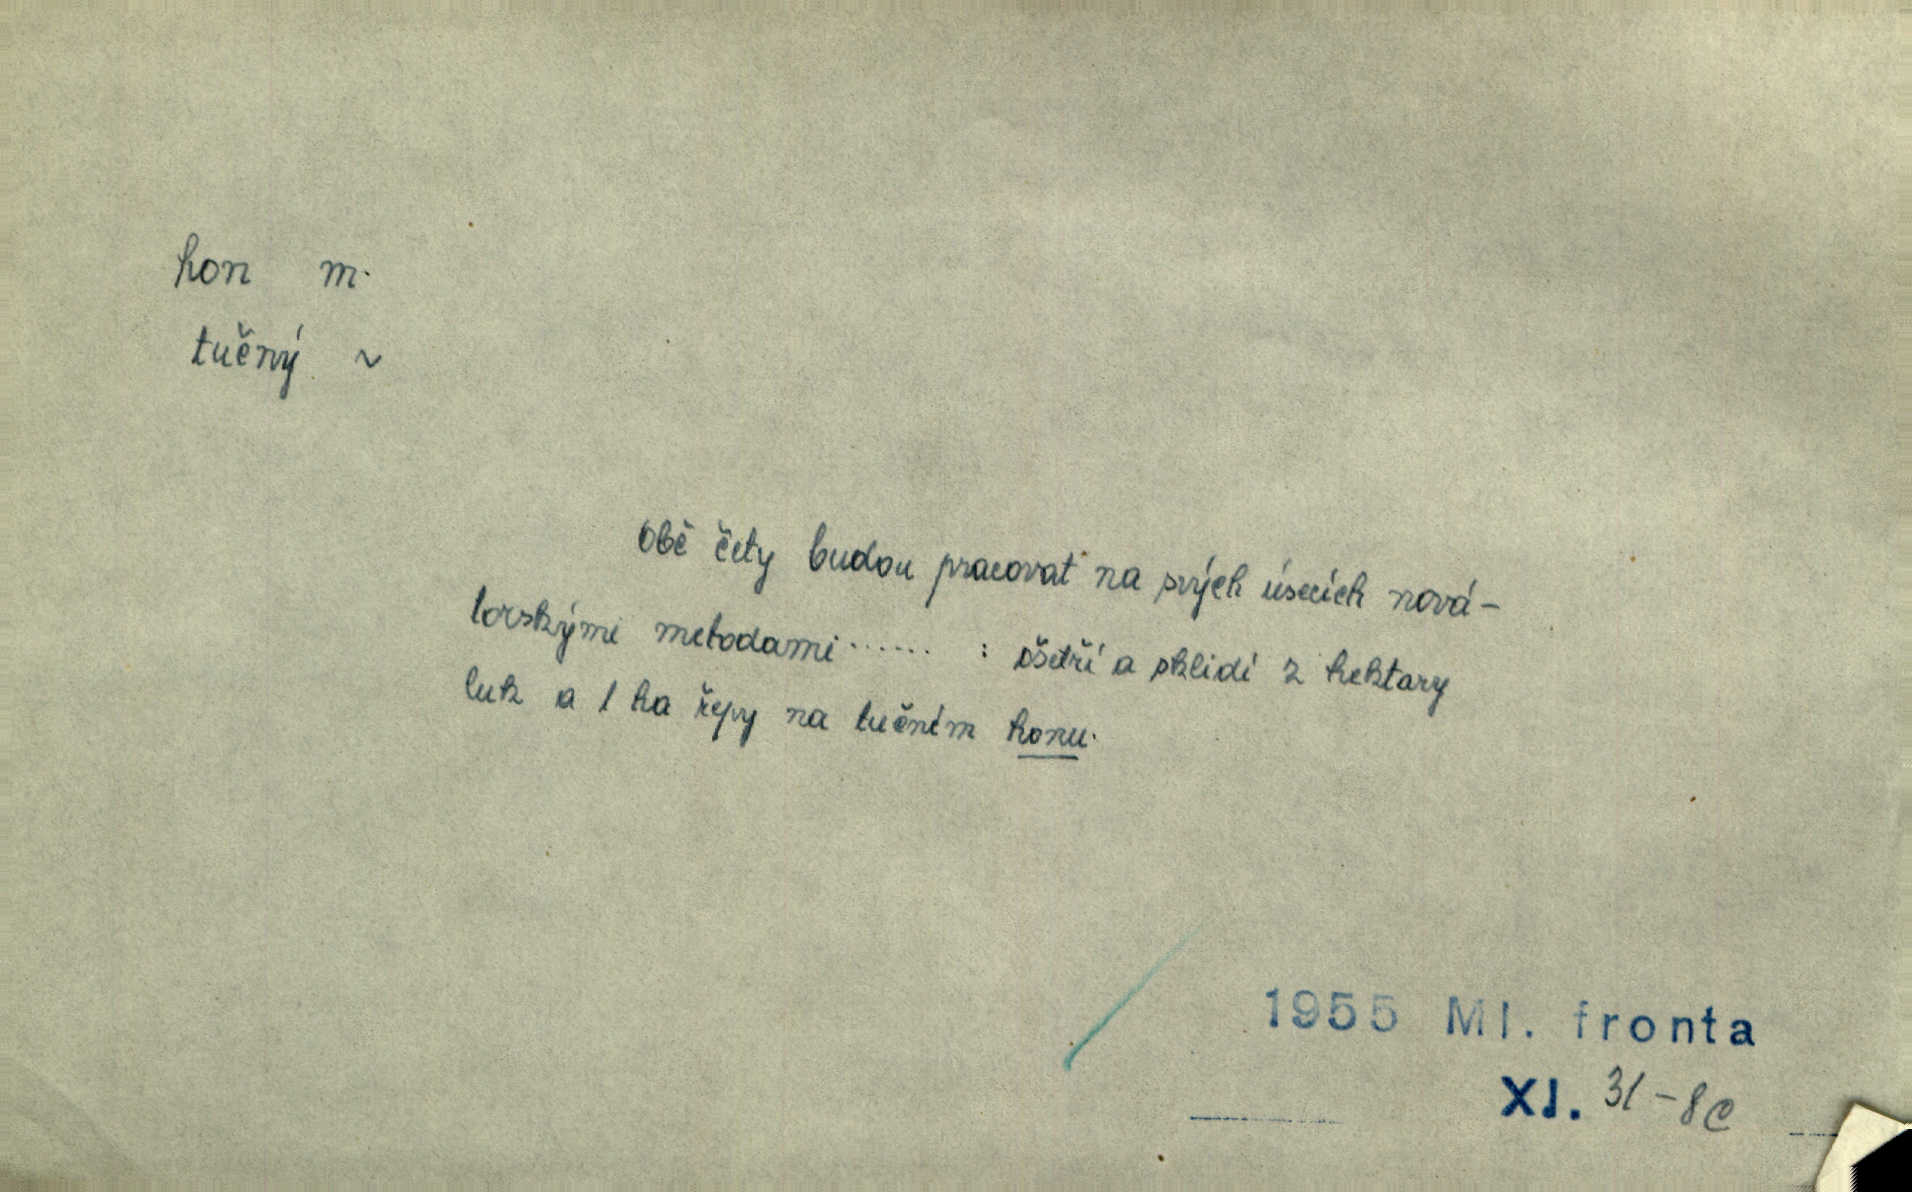 hon m.
tučný ~
Obě čety budou pracovat na svých úsecích nová-
torskými metodami ...... : ošetří a sklidí 2 hektary
luk a 1 ha řepy na tučném honu.
1955 Ml. fronta
XI. 31-8c